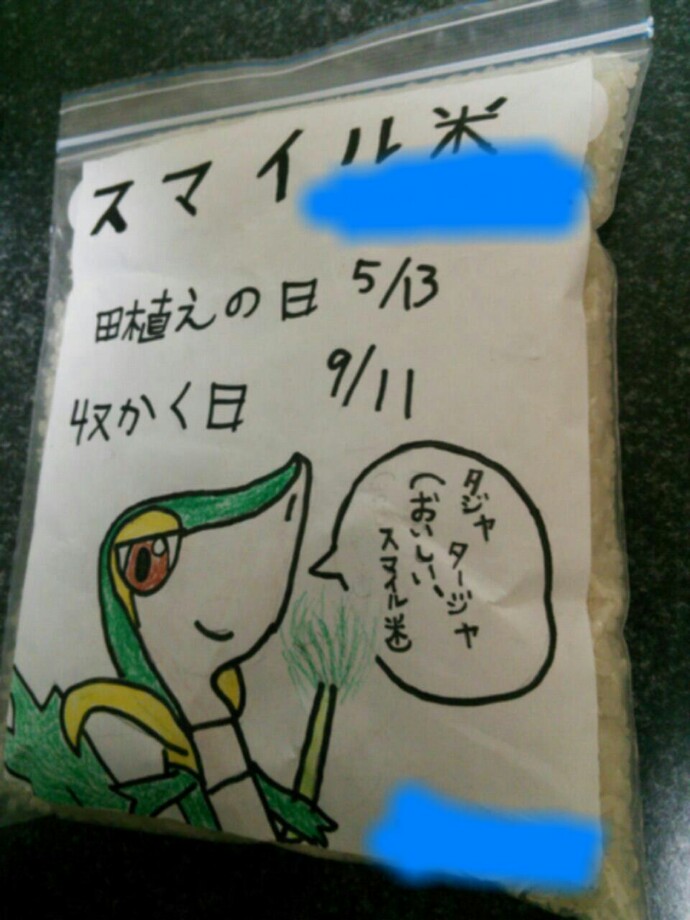 スマイル米
田植えの日 5/13
収かく日 9/11
タジャ タージャ
(おいしい、
スマイル米)